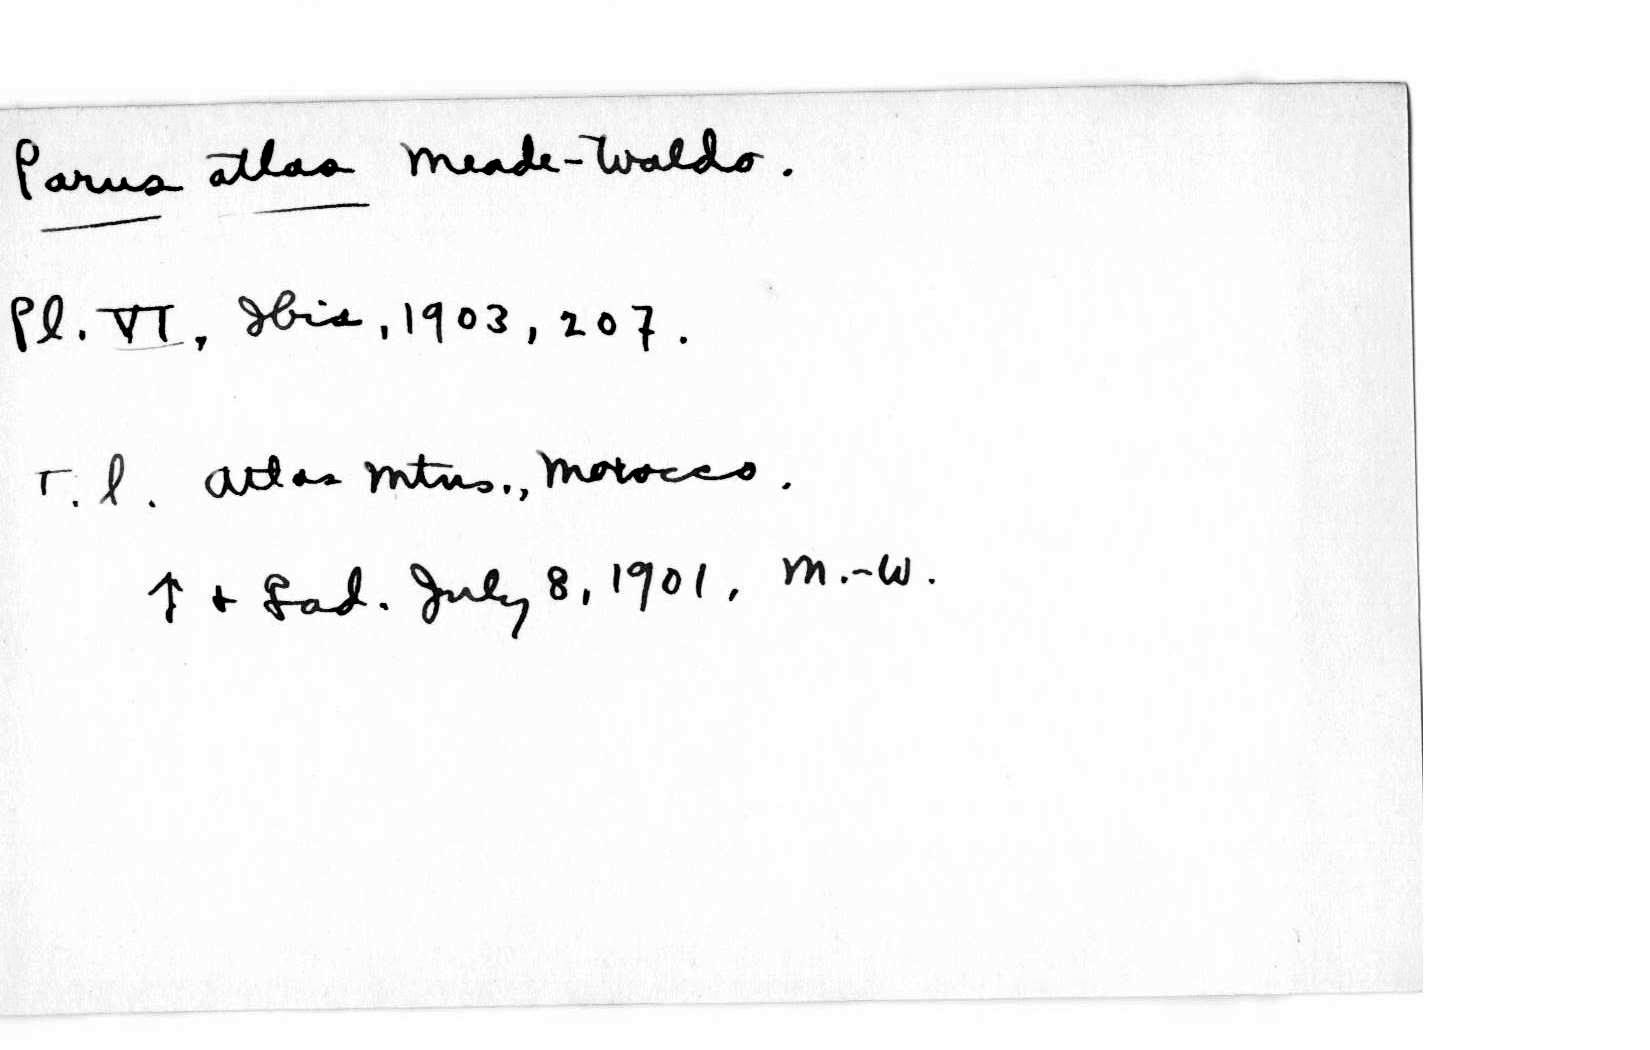 Parus atlas Meade-Waldo.
Pl. VI, Ibis, 1903, 207.
T. l. Atlas Mtns., Morocco.
↑ + ad. July 8, 1901, M.-W.